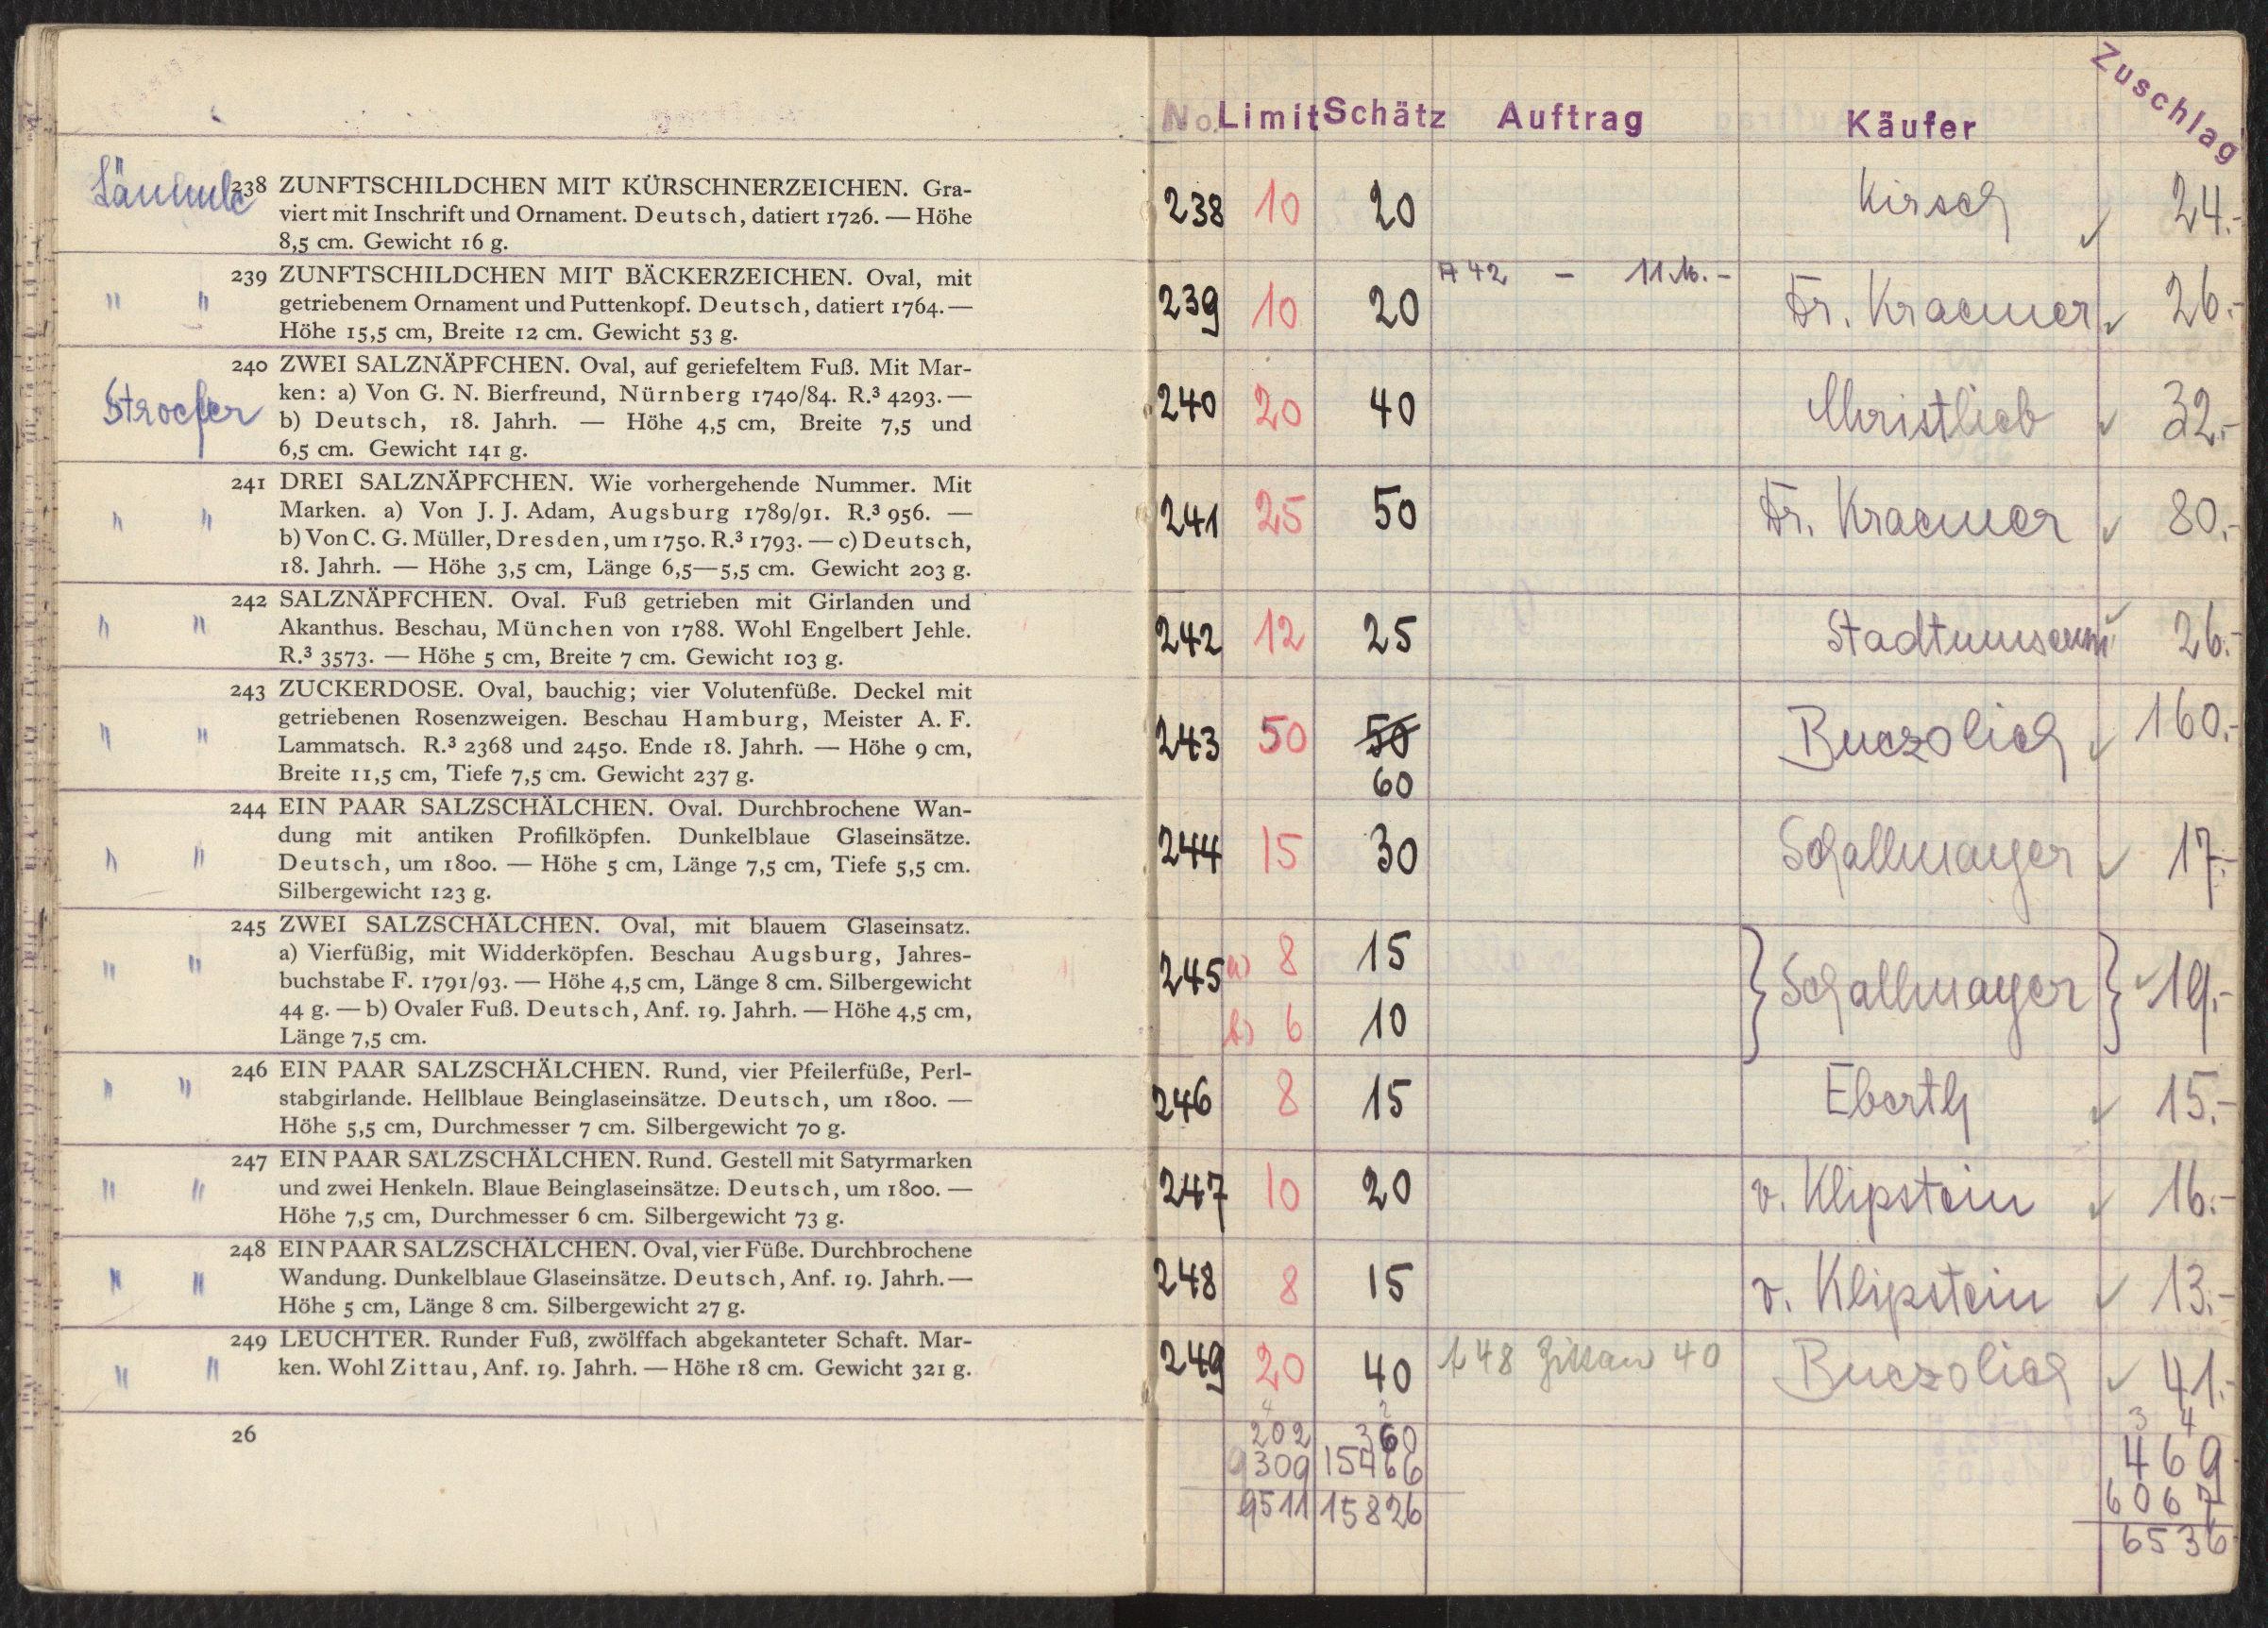 Lämmle
238 ZUNFTSCHILDCHEN MIT KÜRSCHNERZEICHEN. Gra-
viert mit Inschrift und Ornament. Deutsch, datiert 1726. — Höhe
8,5 cm. Gewicht 16 g.
" "
239 ZUNFTSCHILDCHEN MIT BÄCKERZEICHEN. Oval, mit
getriebenem Ornament und Puttenkopf. Deutsch, datiert 1764. —
Höhe 15,5 cm, Breite 12 cm. Gewicht 53 g.
Stroefer
240 ZWEI SALZNÄPFCHEN. Oval, auf geriefeltem Fuß. Mit Mar-
ken: a) Von G. N. Bierfreund, Nürnberg 1740/84. R.³ 4293. —
b) Deutsch, 18. Jahrh. — Höhe 4,5 cm, Breite 7,5 und
6,5 cm. Gewicht 141 g.
" "
241 DREI SALZNÄPFCHEN. Wie vorhergehende Nummer. Mit
Marken. a) Von J. J. Adam, Augsburg 1789/91. R.³ 956. —
b) Von C. G. Müller, Dresden, um 1750. R.³ 1793. — c) Deutsch,
18. Jahrh. — Höhe 3,5 cm, Länge 6,5—5,5 cm. Gewicht 203 g.
" "
242 SALZNÄPFCHEN. Oval. Fuß getrieben mit Girlanden und
Akanthus. Beschau, München von 1788. Wohl Engelbert Jehle.
R.³ 3573. — Höhe 5 cm, Breite 7 cm. Gewicht 103 g.
" "
243 ZUCKERDOSE. Oval, bauchig; vier Volutenfüße. Deckel mit
getriebenen Rosenzweigen. Beschau Hamburg, Meister A. F.
Lammatsch. R.³ 2368 und 2450. Ende 18. Jahrh. — Höhe 9 cm,
Breite 11,5 cm, Tiefe 7,5 cm. Gewicht 237 g.
" "
244 EIN PAAR SALZSCHÄLCHEN. Oval. Durchbrochene Wan-
dung mit antiken Profilköpfen. Dunkelblaue Glaseinsätze.
Deutsch, um 1800. — Höhe 5 cm, Länge 7,5 cm, Tiefe 5,5 cm.
Silbergewicht 123 g.
" "
245 ZWEI SALZSCHÄLCHEN. Oval, mit blauem Glaseinsatz.
a) Vierfüßig, mit Widderköpfen. Beschau Augsburg, Jahres-
buchstabe F. 1791/93. — Höhe 4,5 cm, Länge 8 cm. Silbergewicht
44 g. — b) Ovaler Fuß. Deutsch, Anf. 19. Jahrh. — Höhe 4,5 cm,
Länge 7,5 cm.
" "
246 EIN PAAR SALZSCHÄLCHEN. Rund, vier Pfeilerfüße, Perl-
stabgirlande. Hellblaue Beinglaseinsätze. Deutsch, um 1800. —
Höhe 5,5 cm, Durchmesser 7 cm. Silbergewicht 70 g.
" "
247 EIN PAAR SALZSCHÄLCHEN. Rund. Gestell mit Satyrmarken
und zwei Henkeln. Blaue Beinglaseinsätze. Deutsch, um 1800. —
Höhe 7,5 cm, Durchmesser 6 cm. Silbergewicht 73 g.
" "
248 EIN PAAR SALZSCHÄLCHEN. Oval, vier Füße. Durchbrochene
Wandung. Dunkelblaue Glaseinsätze. Deutsch, Anf. 19. Jahrh. —
Höhe 5 cm, Länge 8 cm. Silbergewicht 27 g.
" "
249 LEUCHTER. Runder Fuß, zwölffach abgekanteter Schaft. Mar-
ken. Wohl Zittau, Anf. 19. Jahrh. — Höhe 18 cm. Gewicht 321 g.
26
No. Limit Schätz Auftrag Käufer Zuschlag
238 10 20 Kirsch ✓ 24.-
239 10 20 A 42 - 11 M. - Dr. Kraemer ✓ 26.-
240 20 40 Christlieb ✓ 32.-
241 25 50 Dr. Kraemer ✓ 80.-
242 12 25 Stadtmuseum ✓ 26.-
243 50 50 Buczolich ✓ 160.-
60
244 15 30 Schallmayer ✓ 17.-
245 a) 8 15 } Schallmayer } ✓ 19.-
b) 6 10
246 8 15 Eberth ✓ 15.-
247 10 20 v. Klipstein ✓ 16.-
248 8 15 v. Klipstein ✓ 13.-
249 20 40 148 Zittau 40 Buczolich ✓ 41.-
4 2 3 4
202 360 469
9309 15466 6067
9511 15826 6536